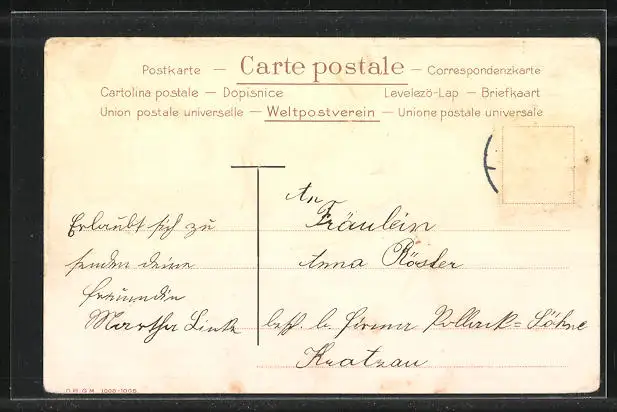 Postkarte — Carte postale — Correspondenzkarte
Cartolina postale — Dopisnice Levelezö-Lap — Briefkaart
Union postale universelle — Weltpostverein — Unione postale universale
An
Fräulein
Anna Rösler
besch. b. Firma Pollack=Söhne
Kratzau
Erlaubt sich zu
senden deine
Freundin
Martha Link
D.R.G.M. 1005-1006